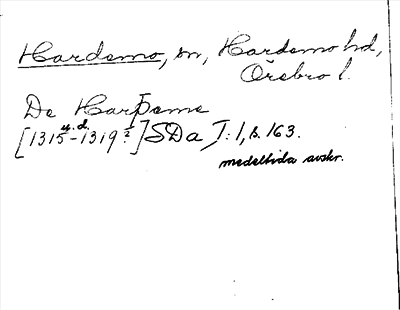 Hardemo, sn, Hardemo hd,
Örebro l.
De Harþeme
u.d.
[1315-1319 ½] SDa I:1, s. 163.
medeltida avskr.